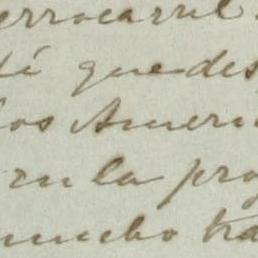 errocarril
que des
los Ameri
en la pro
mucho tra